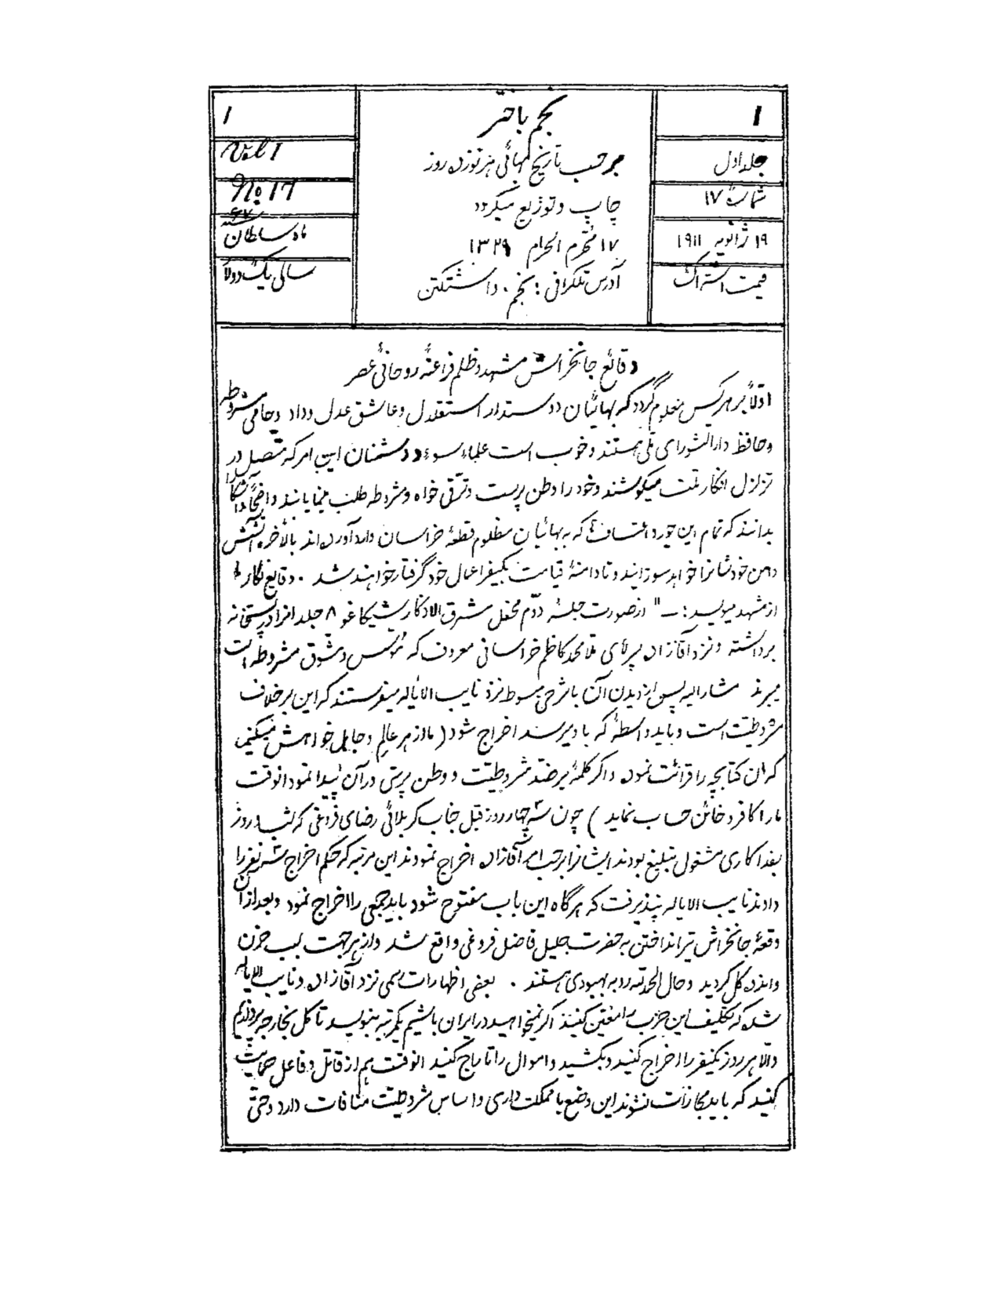 ۱
نجم باختر
1
جلد اول
برحسب تاریخ بهائی هر نوزده روز
Vol 1
شماره ۱۷
چاپ و توزیع میگردد
No 17
۱۹ ژانویه ۱۹۱۱
۱۷ محرم الحرام ۱۳۲۹
ماه سلطان سنه ۶۷
قیمت اشتراک
آدرس تلگرافی : نجم . واشنگتن
سالی یک دولار
وقائع جانخراش مشهد و ظلم فراعنهٔ روحانی عصر
اولاً بر هر کس معلوم گردد که بهائیان دوستدار استقلال و عاشق عدل و داد و حامی مشروطه
و حافظ دارالشورای ملی هستند و خوب است علماء سوء و دشمنان این امر که متصل در
تزلزل افکار ملت میکوشند و خود را وطن پرست و ترقی خواه و مشروطه طلب مینمایند واضحاً آشکارا
بدانند که تمام این جور و اعتساف که به بهائیان مظلوم قطعهٔ خراسان وارد آورده‌اند بالأخره آتش
دهن خودشانرا خواهد سوزانید و تا دامنهٔ قیامت بکیفر اعمال خود گرفتار خواهند شد . وقایع نگار
از مشهد مینویسد :ـ " از صورت جلسهٔ دوّم محفل مشرق الاذکار شیکاغو ۸ جلد افراد پستخانه
برداشته و نزد آقازاده پسر آقای ملا محمد کاظم خراسانی معروف که مؤسس و مشوق مشروطه است
میبرند مشارالیه پس از دیدن آن با شرحی مبسوط نزد نایب الایاله میفرستند که این برخلاف
مشروطیت است و باید واسطهٔ که باو میرسد اخراج شود ( ما از هر عالم و جاهل خواهش میکنیم
که آن کتابچه را قرائت نموده و اگر کلمهٔ بر ضد مشروطیت و وطن پرستی در آن پیدا نمود آنوقت
ما را کافر و خائن حساب نماید ) چون سه چهار روز قبل جناب کربلائی رضای فروغی که شب و روز
بفداکاری مشغول تبلیغ بودند ایشانرا برحسب امر آقازاده اخراج نمودند این مرتبه که حکم اخراج سه نفر را
دادند نایب الایاله نپذیرفت که هرگاه این باب مفتوح شود باید جمعی را اخراج نمود و بعد از آن
وقعهٔ جانخراش تیر انداختن به حضرت جلیل فاضل فروغی واقع شد و از هر جهت سبب حزن
و اندوه کل گردید و حال الحمدلله رو به بهبودی هستند . بعضی اظهارات رسمی نزد آقازاده و نایب الایاله
شد که تکلیف این حزب را معین کنید اگر نمیخواهید در ایران باشیم یکمرتبه بنویسید تا کل بخارجه برویم
والّا هر روز یکنفر را اخراج کنید و بکشید و اموال را تاراج کنید آنوقت هم از قاتل و فاعل حمایت
کنید که باید مجازات نشوند این وضع با مملکت داری و اساس مشروطیت منافات دارد و حتی